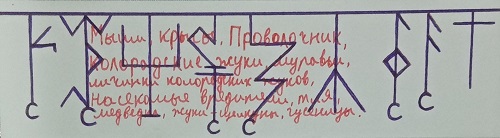 Мыши, крысы, Проволочник,
Колорадские жуки, муравьи,
личинки колорадских жуков,
насекомые вредители, тля,
медведки, жуки-щелкуны, гусеницы.